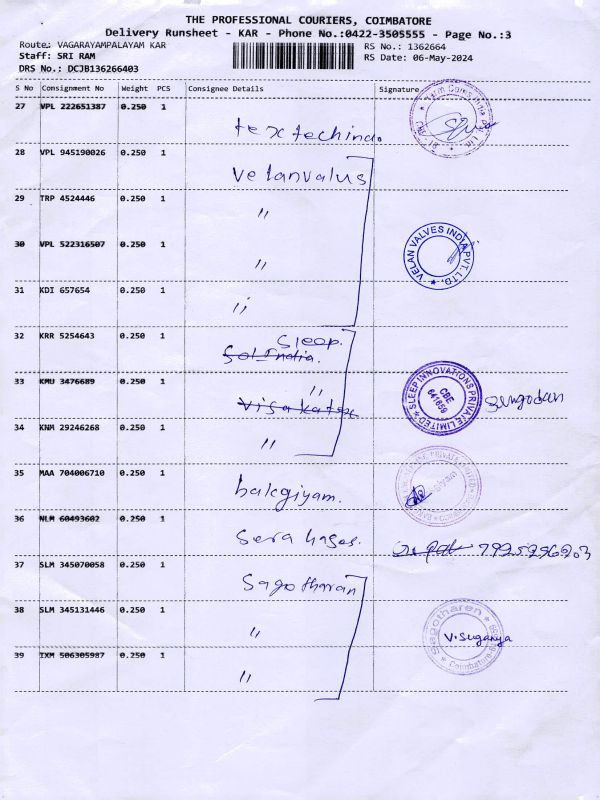 THE PROFESSIONAL COURIERS, COIMBATORE
Delivery Runsheet - KAR - Phone No.:0422-3505555 - Page No.:3
Route: VAGARAYAMPALAYAM KAR
RS No.: 1362664
Staff: SRI RAM
RS Date: 06-May-2024
DRS No.: DCJB136266403
S No Consignment No Weight PCS Consignee Details Signature
27 VPL 222651387 0.250 1
textechindo.
28 VPL 945190026 0.250 1
Velanvalus
29 TRP 4524446 0.250 1
"
30 VPL 522316507 0.250 1
"
VELAN VALVES INDIA PVT. LTD.
31 KDI 657654 0.250 1
"
32 KRR 5254643 0.250 1
Sleep.
Sol India.
33 KMU 3476689 0.250 1
"
SLEEP INNOVATIONS PRIVATE LIMITED
CBE
641659
Sengodan
34 KNM 29246268 0.250 1
"
35 MAA 704006710 0.250 1
bakgiyam.
36 NLM 60493602 0.250 1
7925296203
37 SLM 345070058 0.250 1
Sagotharan
38 SLM 345131446 0.250 1
"
Sagotharen
V.Suganya
39 IXM 506305987 0.250 1
"